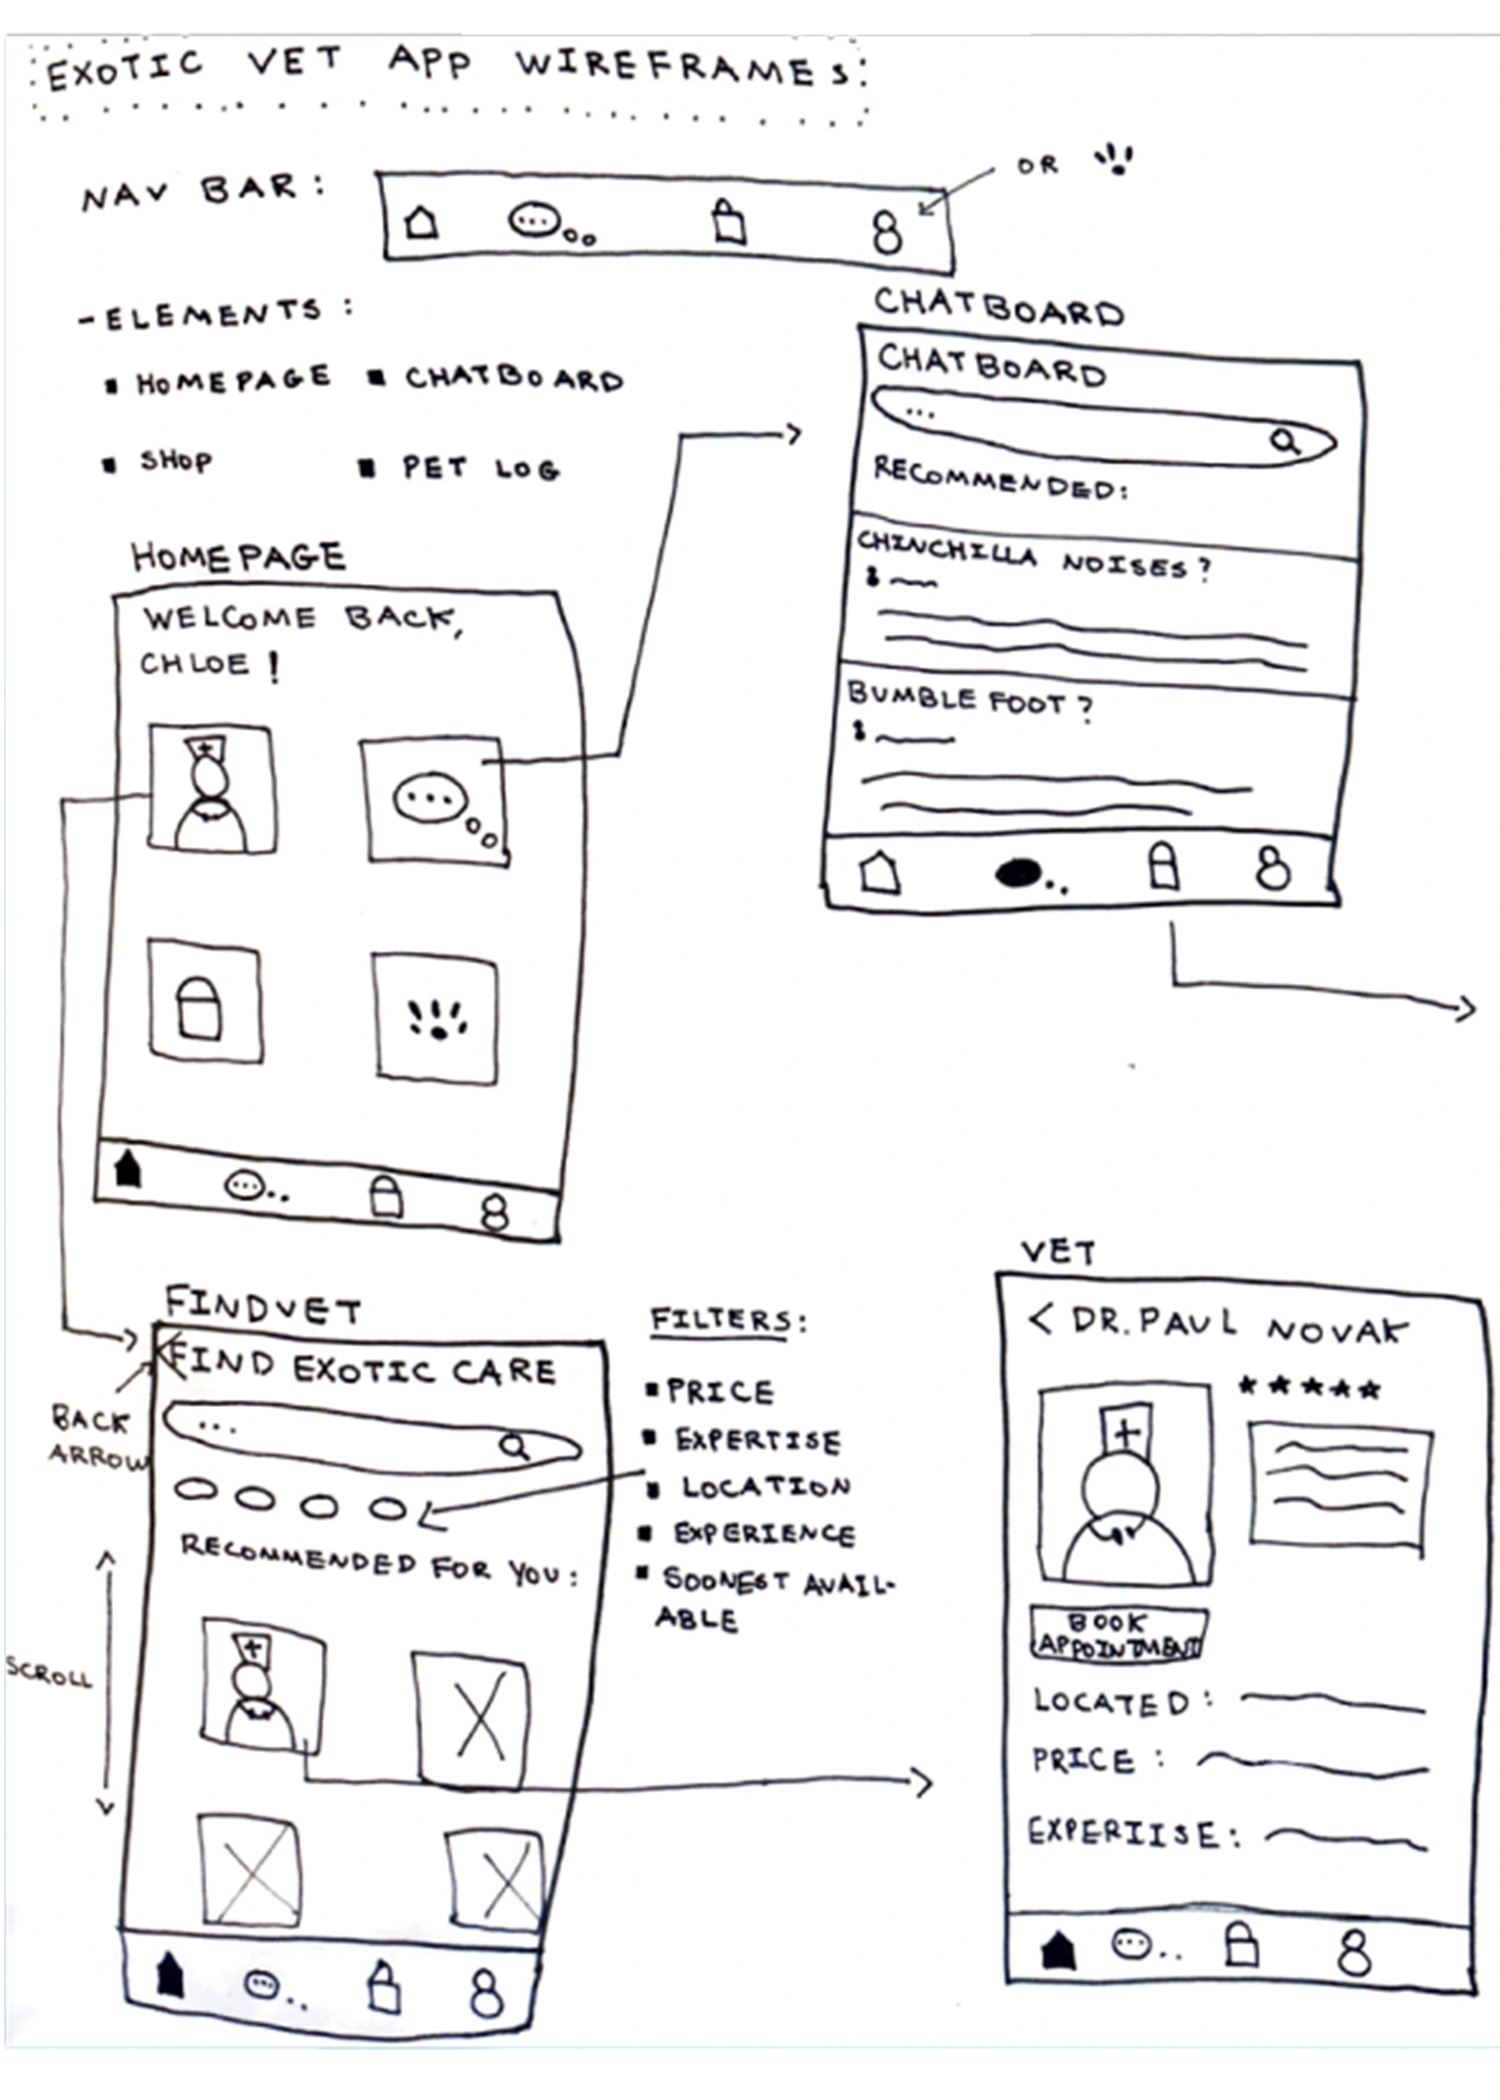 EXOTIC VET APP WIREFRAMES:
NAV BAR:
OR
-ELEMENTS:
▪ HOMEPAGE ▪ CHATBOARD
▪ SHOP ▪ PET LOG
CHATBOARD
CHATBOARD
...
RECOMMENDED:
CHINCHILLA NOISES?
BUMBLE FOOT?
HOMEPAGE
WELCOME BACK,
CHLOE!
FINDVET
<FIND EXOTIC CARE
BACK
ARROW
...
RECOMMENDED FOR YOU:
SCROLL
FILTERS:
▪ PRICE
▪ EXPERTISE
▪ LOCATION
▪ EXPERIENCE
▪ SOONEST AVAIL-
ABLE
VET
< DR. PAUL NOVAK
★★★★★
BOOK
APPOINTMENT
LOCATED:
PRICE:
EXPERTISE: